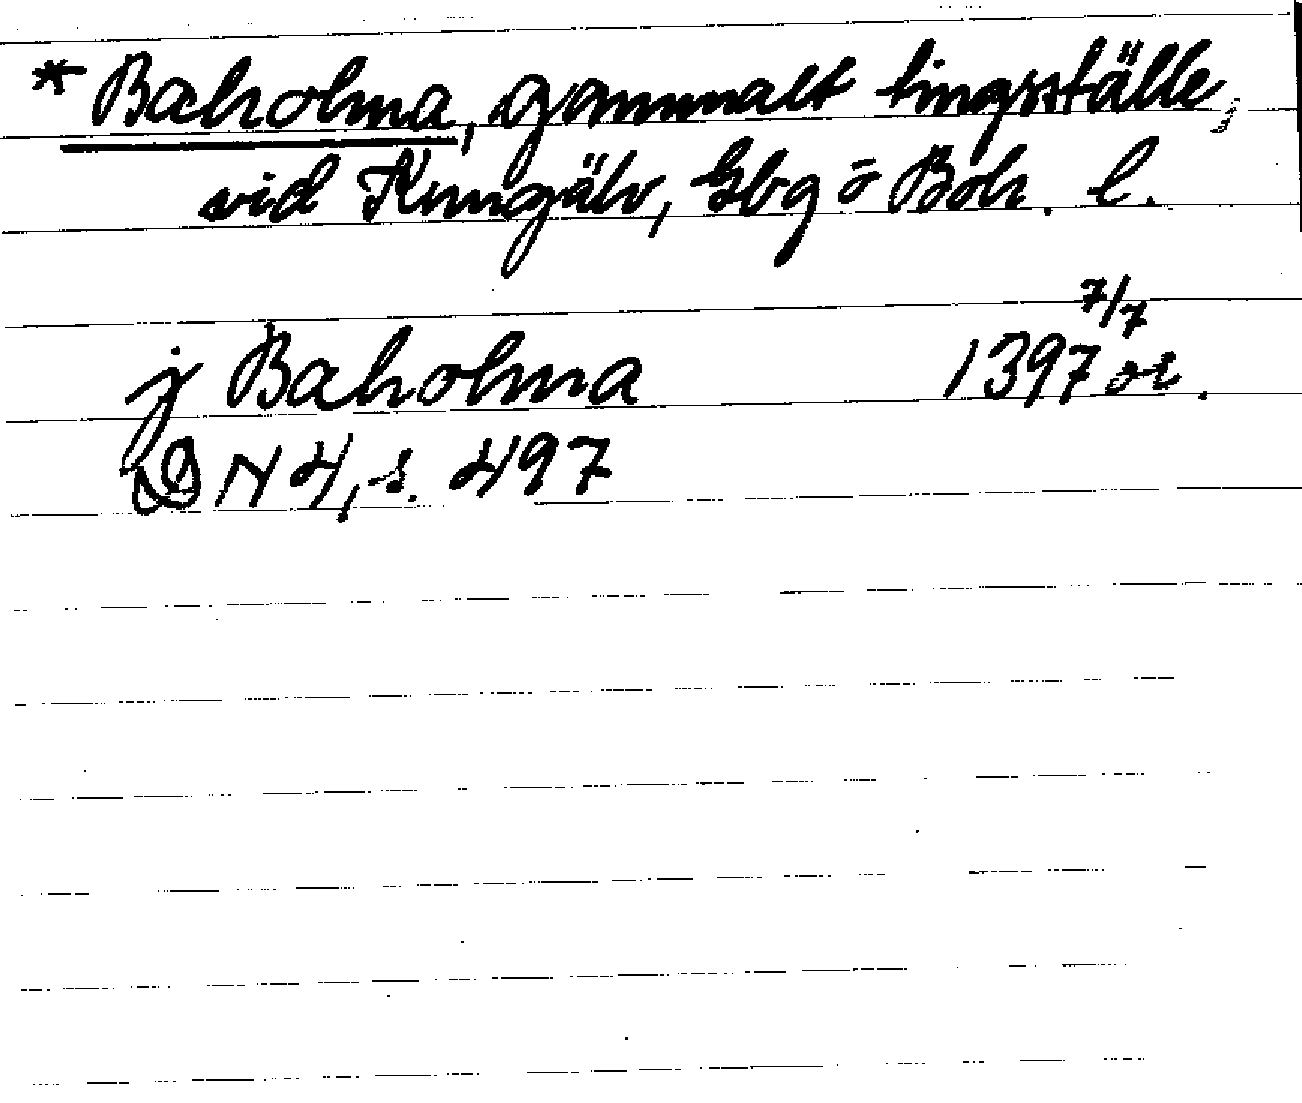 * Baholma, gammalt tingsställe,
vid Kungälv, Gbg o Boh. l.
j Baholma 1397 7/7 or.
DN 4, s. 497